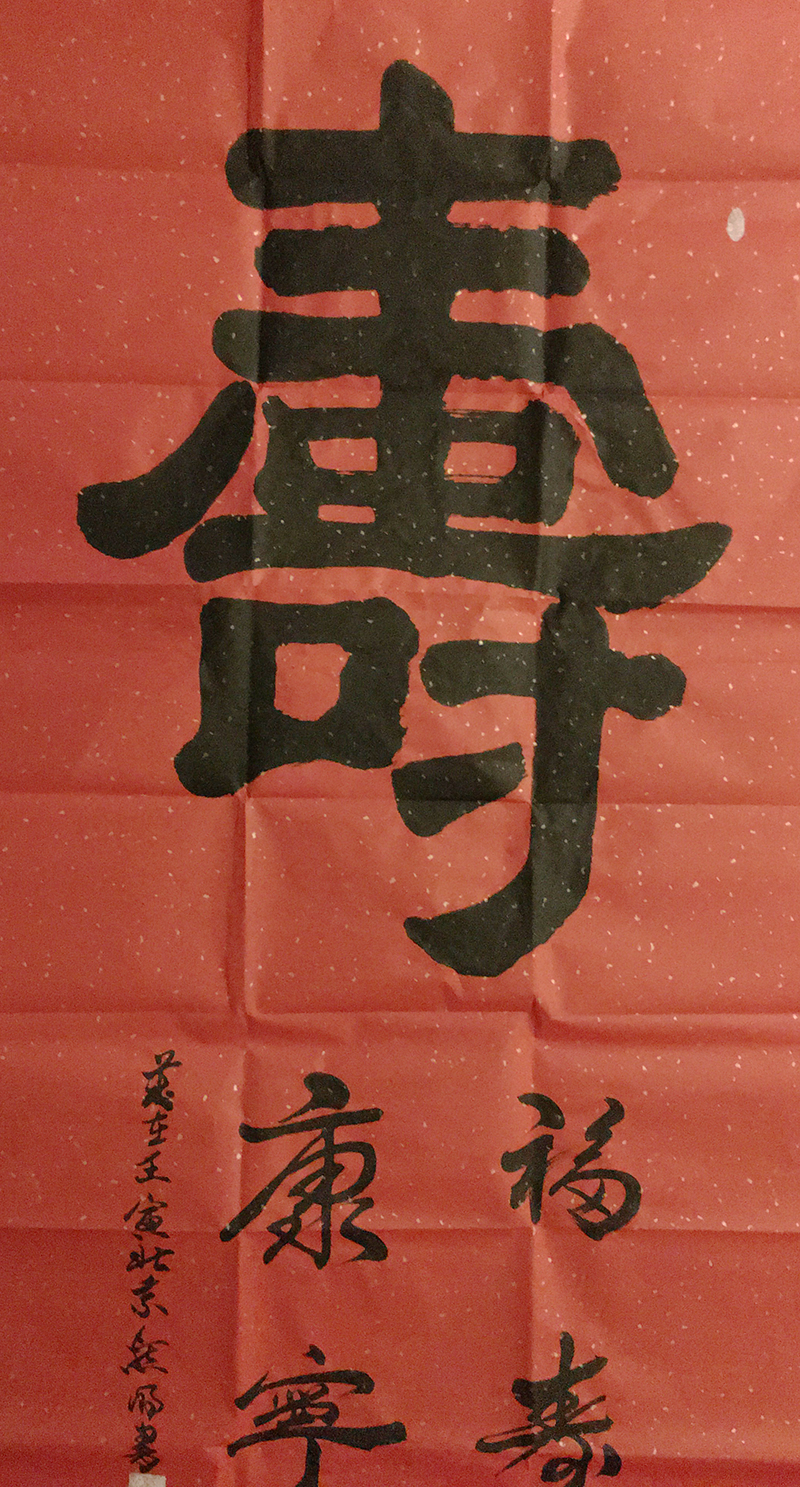 壽
福壽
康寧
歲在壬寅北京
書